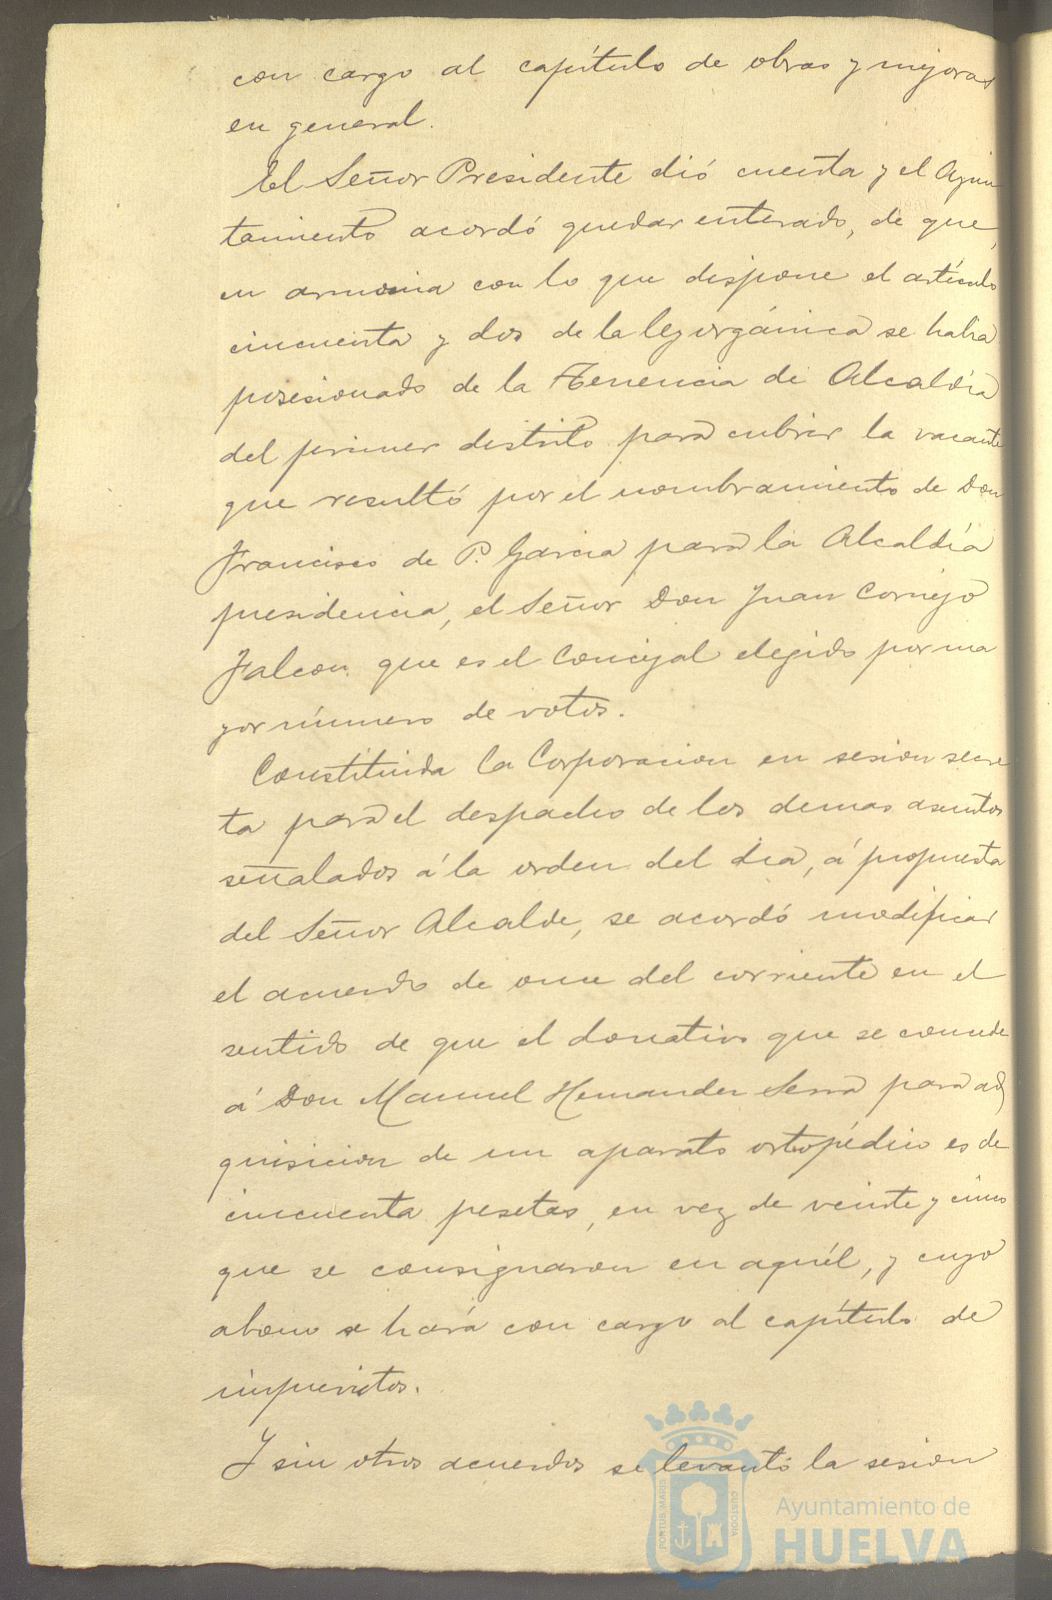 con cargo al capítulo de obras y mejoras
en general.
El Señor Presidente dió cuenta y el Ayun
tamiento acordó quedar enterado, de que,
en armonia con lo que dispone el artículo
cincuenta y dos de la ley orgánica se habia
posesionado de la Tenencia de Alcaldía
del primer distrito para cubrir la vacante
que resultó por el nombramiento de Don
Francisco de P. Garcia para la Alcaldía
presidencia, el Señor Don Juan Cornejo
Falcon que es el Concejal elegido por ma
yor número de votos.
Constituida la Corporacion en sesion secre
ta para el despacho de los demas asuntos
señalados á la orden del dia, á propuesta
del Señor Alcalde, se acordó modificar
el acuerdo de once del corriente en el
sentido de que el donativo que se concede
á Don Manuel Hernandez Serra para ad
quisicion de un aparato ortopédico es de
cincuenta pesetas, en vez de veinte y cinco
que se consignaron en aquél, y cuyo
abono se hará con cargo al capítulo de
imprevistos.
Y sin otros acuerdos se levantó la sesion
PORTUS MARIS CUSTODIA
Ayuntamiento de
HUELVA